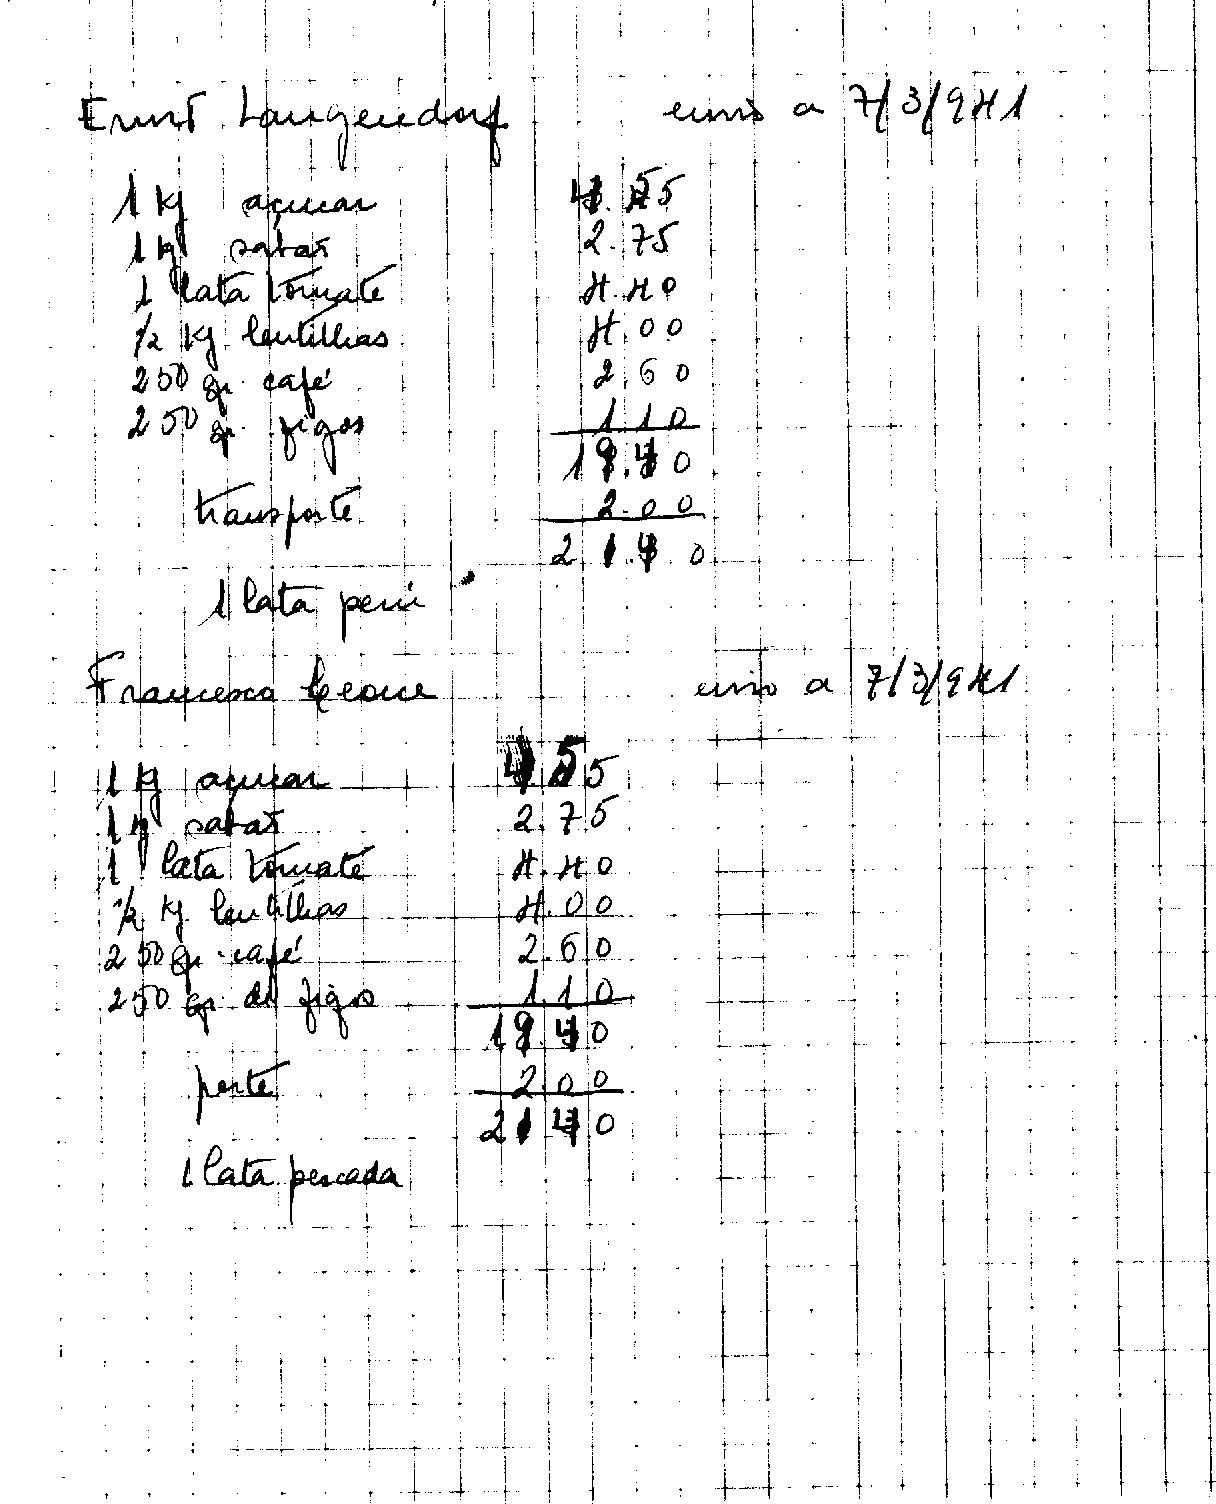 Ernst Langendorf envio a 7/3/941
1 kg açucar 4.55
1 kg sabão 2.75
1 lata tomate 4.40
1/2 kg lentilhas 4.00
250 gr. café 2.60
250 gr. figos 1.10
19.40
transporte 2.00
21.40
1 lata perú
Francesco Leone envio a 7/3/941
1 kg açucar 4.55
1 kg sabão 2.75
1 lata tomate 4.40
1/2 kg lentilhas 4.00
250 gr. café 2.60
250 gr. de figos 1.10
19.40
porte 2.00
21.40
1 lata pescada